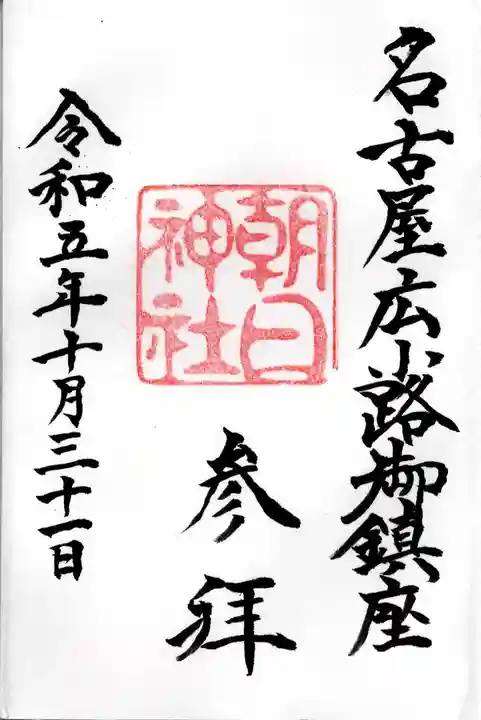 名古屋広小路御鎮座
朝日
神社
参拝
令和五年十月三十一日